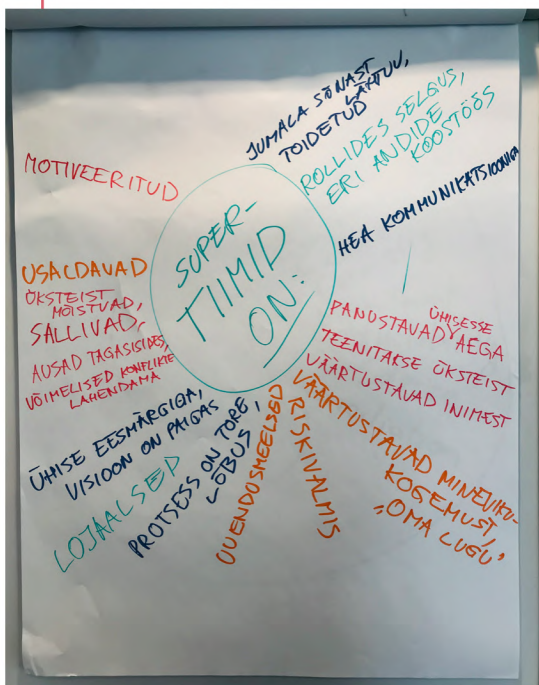 SUPER-
TIIMID
ON:
JUMALA SÕNAST
LÄHTUV,
TOIDETUD
ROLLIDES SELGUS,
ERI ANDIDE
KOOSTÖÖS
HEA KOMMUNIKATSIOONIGA
PANUSTAVAD ÜHISESSE
AEGA
TEENITAKSE ÜKSTEIST
VÄÄRTUSTAVAD INIMEST
VÄÄRTUSTAVAD MINEVIKU-
KOGEMUST,
„OMA LUGU”
RISKIVALMIS
UUENDUSMEELSED
PROTSESS ON TORE,
LÕBUS
LOJAALSED
ÜHISE EESMÄRGIGA,
VISIOON ON PAIGAS
USALDAVAD
ÜKSTEIST
MÕISTVAD,
SALLIVAD,
AUSAD TAGASISIDES,
VÕIMELISED KONFLIKTE
LAHENDAMA
MOTIVEERITUD